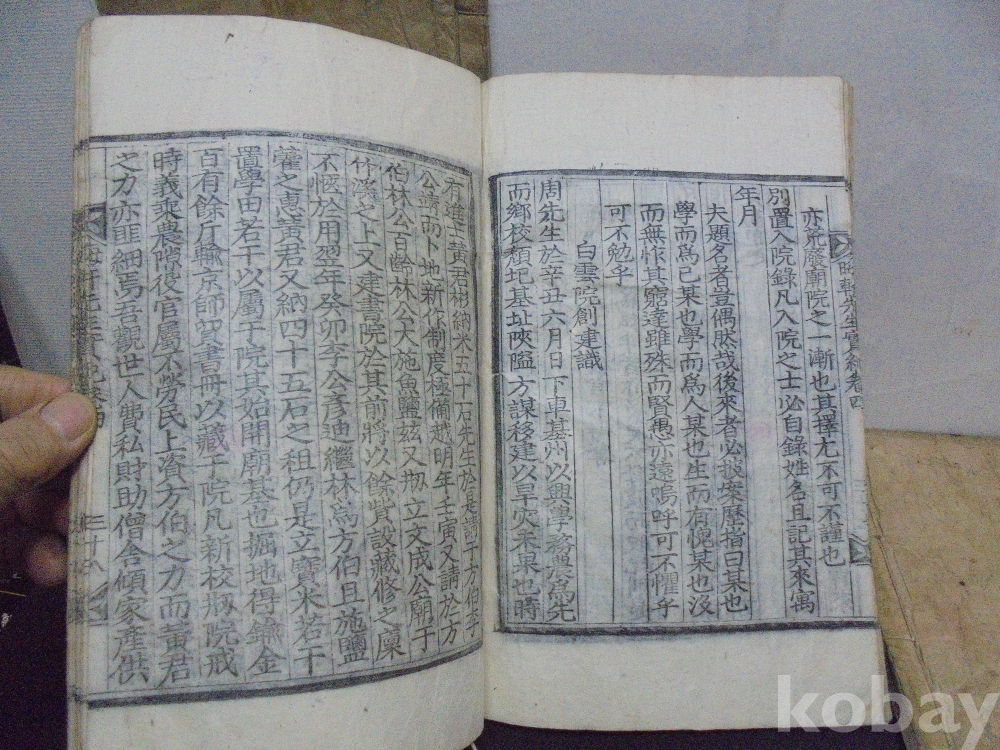 亦荒廢廟院之一漸也其擇尤不可不謹也
別置入院錄凡入院之士必自錄姓名且記其來寓
年月
夫題名者豈偶然哉後來者必披案歷指曰某也
學而爲己某也學而爲人某也生而有愧某也沒
而無怍其窮達雖殊而賢愚亦遠嗚呼可不懼乎
可不勉乎
白雲院創建識
周先生於辛丑六月日下車基州以興學務農爲先
而鄕校頹圮基址陜隘方謀移建以旱灾未果也時
有進士黃君彬納米五十石先生於是請于方伯
公請而卜地新作制度極備越明年壬寅又請於方
伯林公百齡林公大施魚鹽玆又刱立文成公廟于
竹溪之上又建書院於其前將以餘貲設藏修之廩
不愜於用翌年癸卯李公彦迪繼林爲方伯且施鹽
藿之惠黃君又納四十五石之租仍是立寶米若干
置學田若干以屬于院其始開廟基也掘地得鍮金
百有餘斤輸京師買書冊以藏于院凡新校刱院戒
時義乘農隙役官屬不勞民上資方伯之力而黃君
之力亦匪細焉吾觀世人費私財助僧舍傾家產供
三十八
kobay